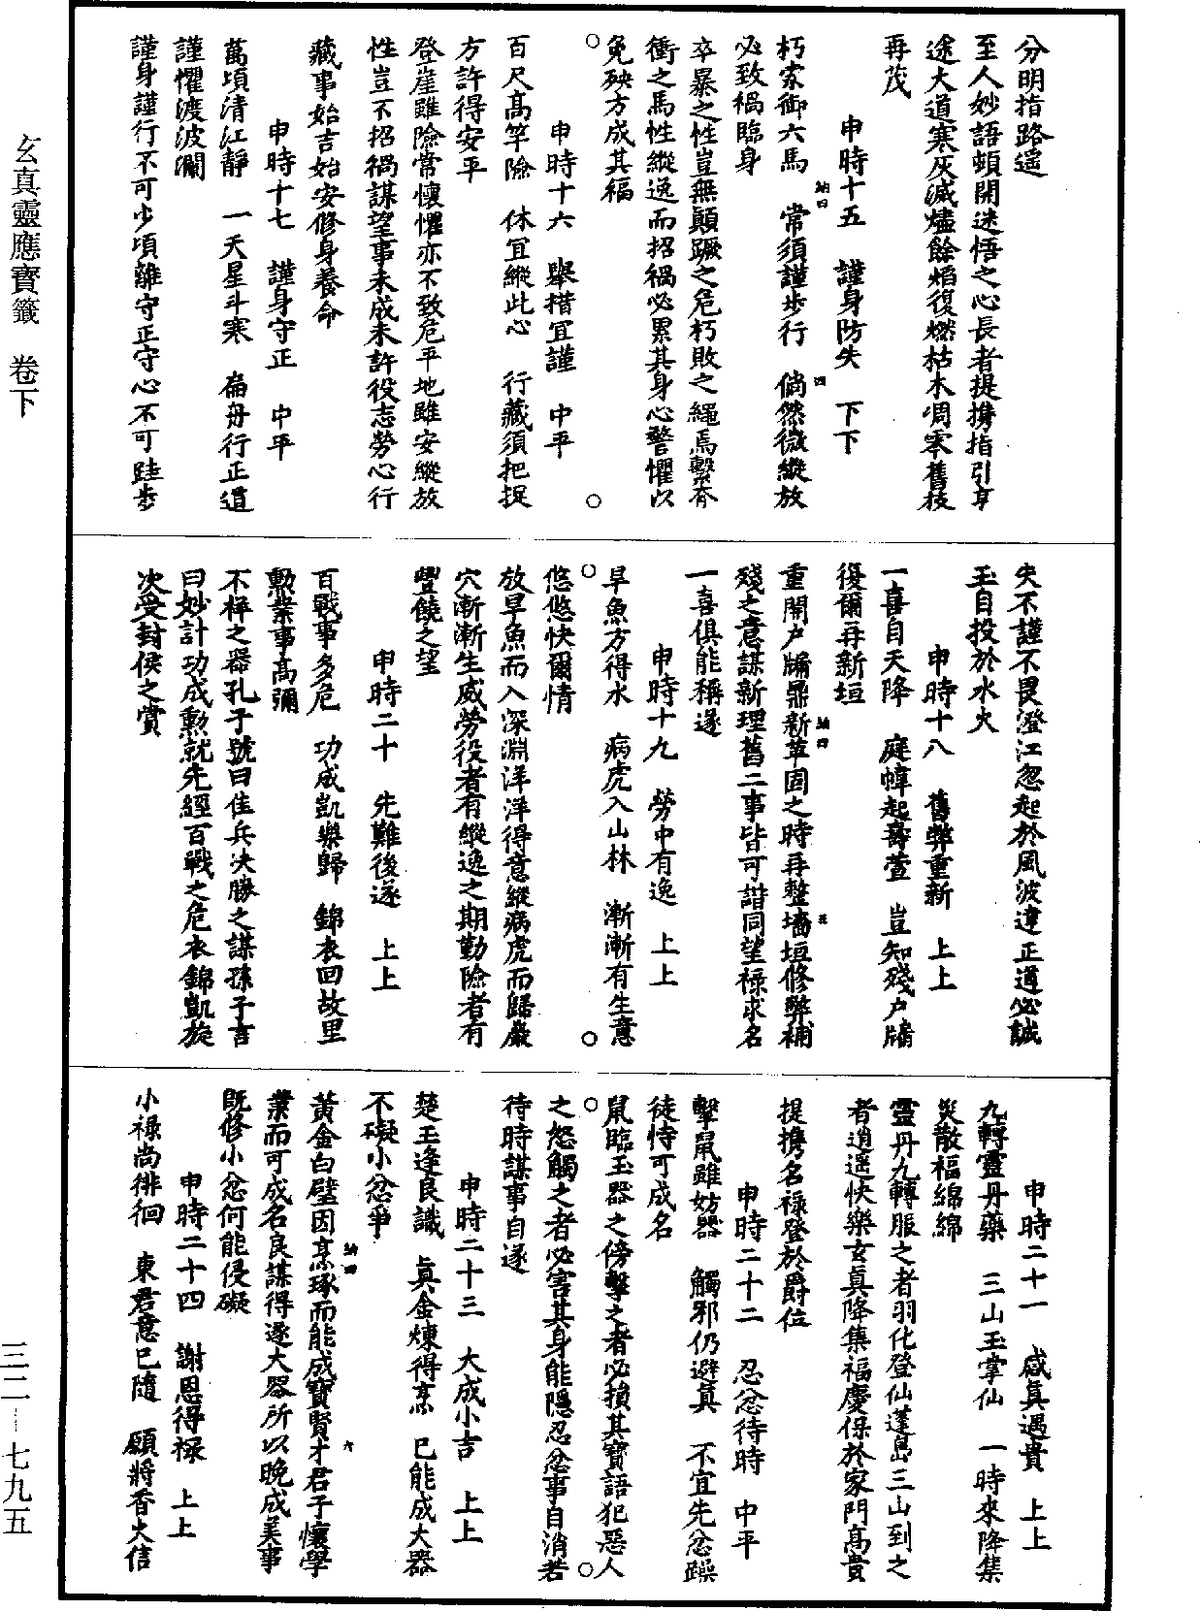 分明指路遥
至人妙語頓開迷悟之心長者提携指引亨
途大道寒灰滅燼餘焰復燃枯木凋零舊枝
再茂
申時十五　謹身防失　下下
朽索御六馬　常須謹步行　倘然微縱放
必致禍臨身
卒暴之性豈無顛蹶之危朽敗之繩焉繫奔
衝之馬性縱逸而招禍必累其身心警懼以
免殃方成其福
申時十六　舉措宜謹　中平
百尺髙竿險　休宜縱此心　行藏須把捉
方許得安平
登崖雖險常懷懼亦不致危平地雖安縱放
性豈不招禍謀望事未成未許役志勞心行
藏事始吉始安修身養命
申時十七　謹身守正　中平
萬頃清江靜　一天星斗寒　扁舟行正道
謹懼渡波瀾
謹身謹行不可少頃離守正守心不可跬步
失不謹不畏澄江忽起於風波違正道必誠
玉自投於水火
申時十八　舊弊重新　上上
一喜自天降　庭幃起壽萱　豈知殘户牖
復爾再新垣
重開户牖鼎新革固之時再整墻垣修弊補
殘之意謀新理舊二事皆可諧同望禄求名
一喜俱能稱遂
申時十九　勞中有逸　上上
旱魚方得水　病虎入山林　漸漸有生意
悠悠快爾情
放旱魚而入深淵洋洋得意縱病虎而歸巖
穴漸漸生威勞役者有縱逸之期勤險者有
豐饒之望
申時二十　先難後遂　上上
百戰事多危　功成凱樂歸　錦衣回故里
勲業事髙彌
不祥之器孔子號曰佳兵决勝之謀孫子言
曰妙計功成勲就先經百戰之危衣錦凱旋
次受封侯之賞
申時二十一　感真遇貴　上上
九轉靈丹藥　三山玉掌仙　一時來降集
災散福綿綿
靈丹九轉服之者羽化登仙蓬島三山到之
者逍遥快樂玄真降集福慶保於家門髙貴
提携名禄登於爵位
申時二十二　忍忿待時　中平
擊鼠雖妨器　觸邪仍避真　不宜先忿躁
徒恃可成名
鼠臨玉器之傍擊之者必損其寶語犯惡人
之怒觸之者必害其身能隱忍忿事自消若
待時謀事自遂
申時二十三　大成小吉　上上
楚玉逢良識　真金煉得烹　已能成大器
不礙小忿爭
黃金白璧因烹琢而能成寶賢才君子懷學
業而可成名良謀得遂大器所以晚成美事
既修小忿何能侵礙
申時二十四　謝恩得禄　上上
小禄尚徘徊　東君意已隨　願將香火信
玄真靈應寶籤　卷下
三二—七九五